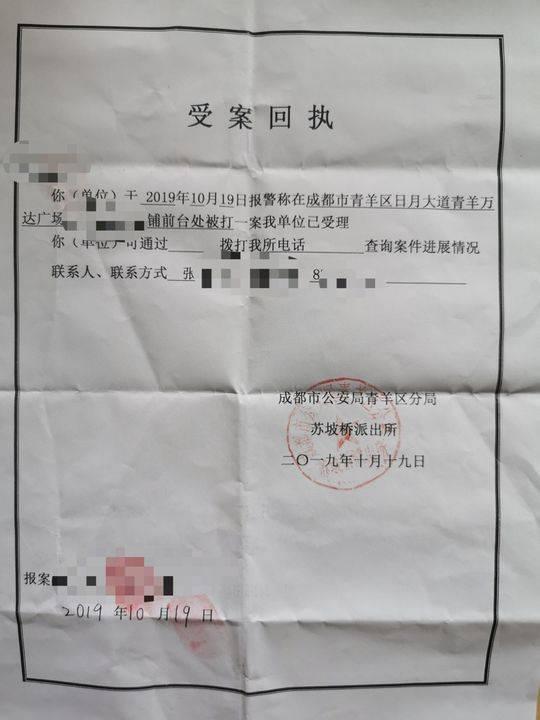 受案回执
你（单位）于 2019年10月19日报警称在成都市青羊区日月大道青羊万
达广场 铺前台处被打一案我单位已受理
你（单位）可通过 拨打我所电话 查询案件进展情况
联系人、联系方式 张 8
成都市公安局青羊区分局
苏坡桥派出所
二〇一九年十月十九日
报案
2019 年10 月 19 日